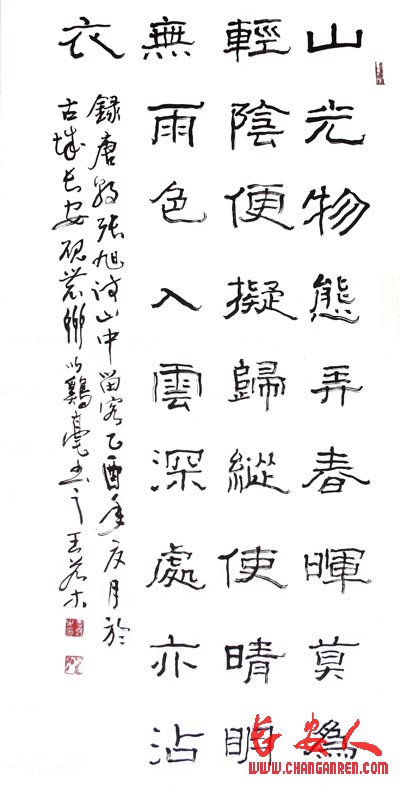 山光物態弄春暉莫爲
輕陰便擬歸縱使晴明
無雨色入雲深處亦沾
衣
錄唐張旭詩山中留客乙酉年月於
古城長安以鷄毫書之王若木
长安人
WWW.CHANGANREN.COM